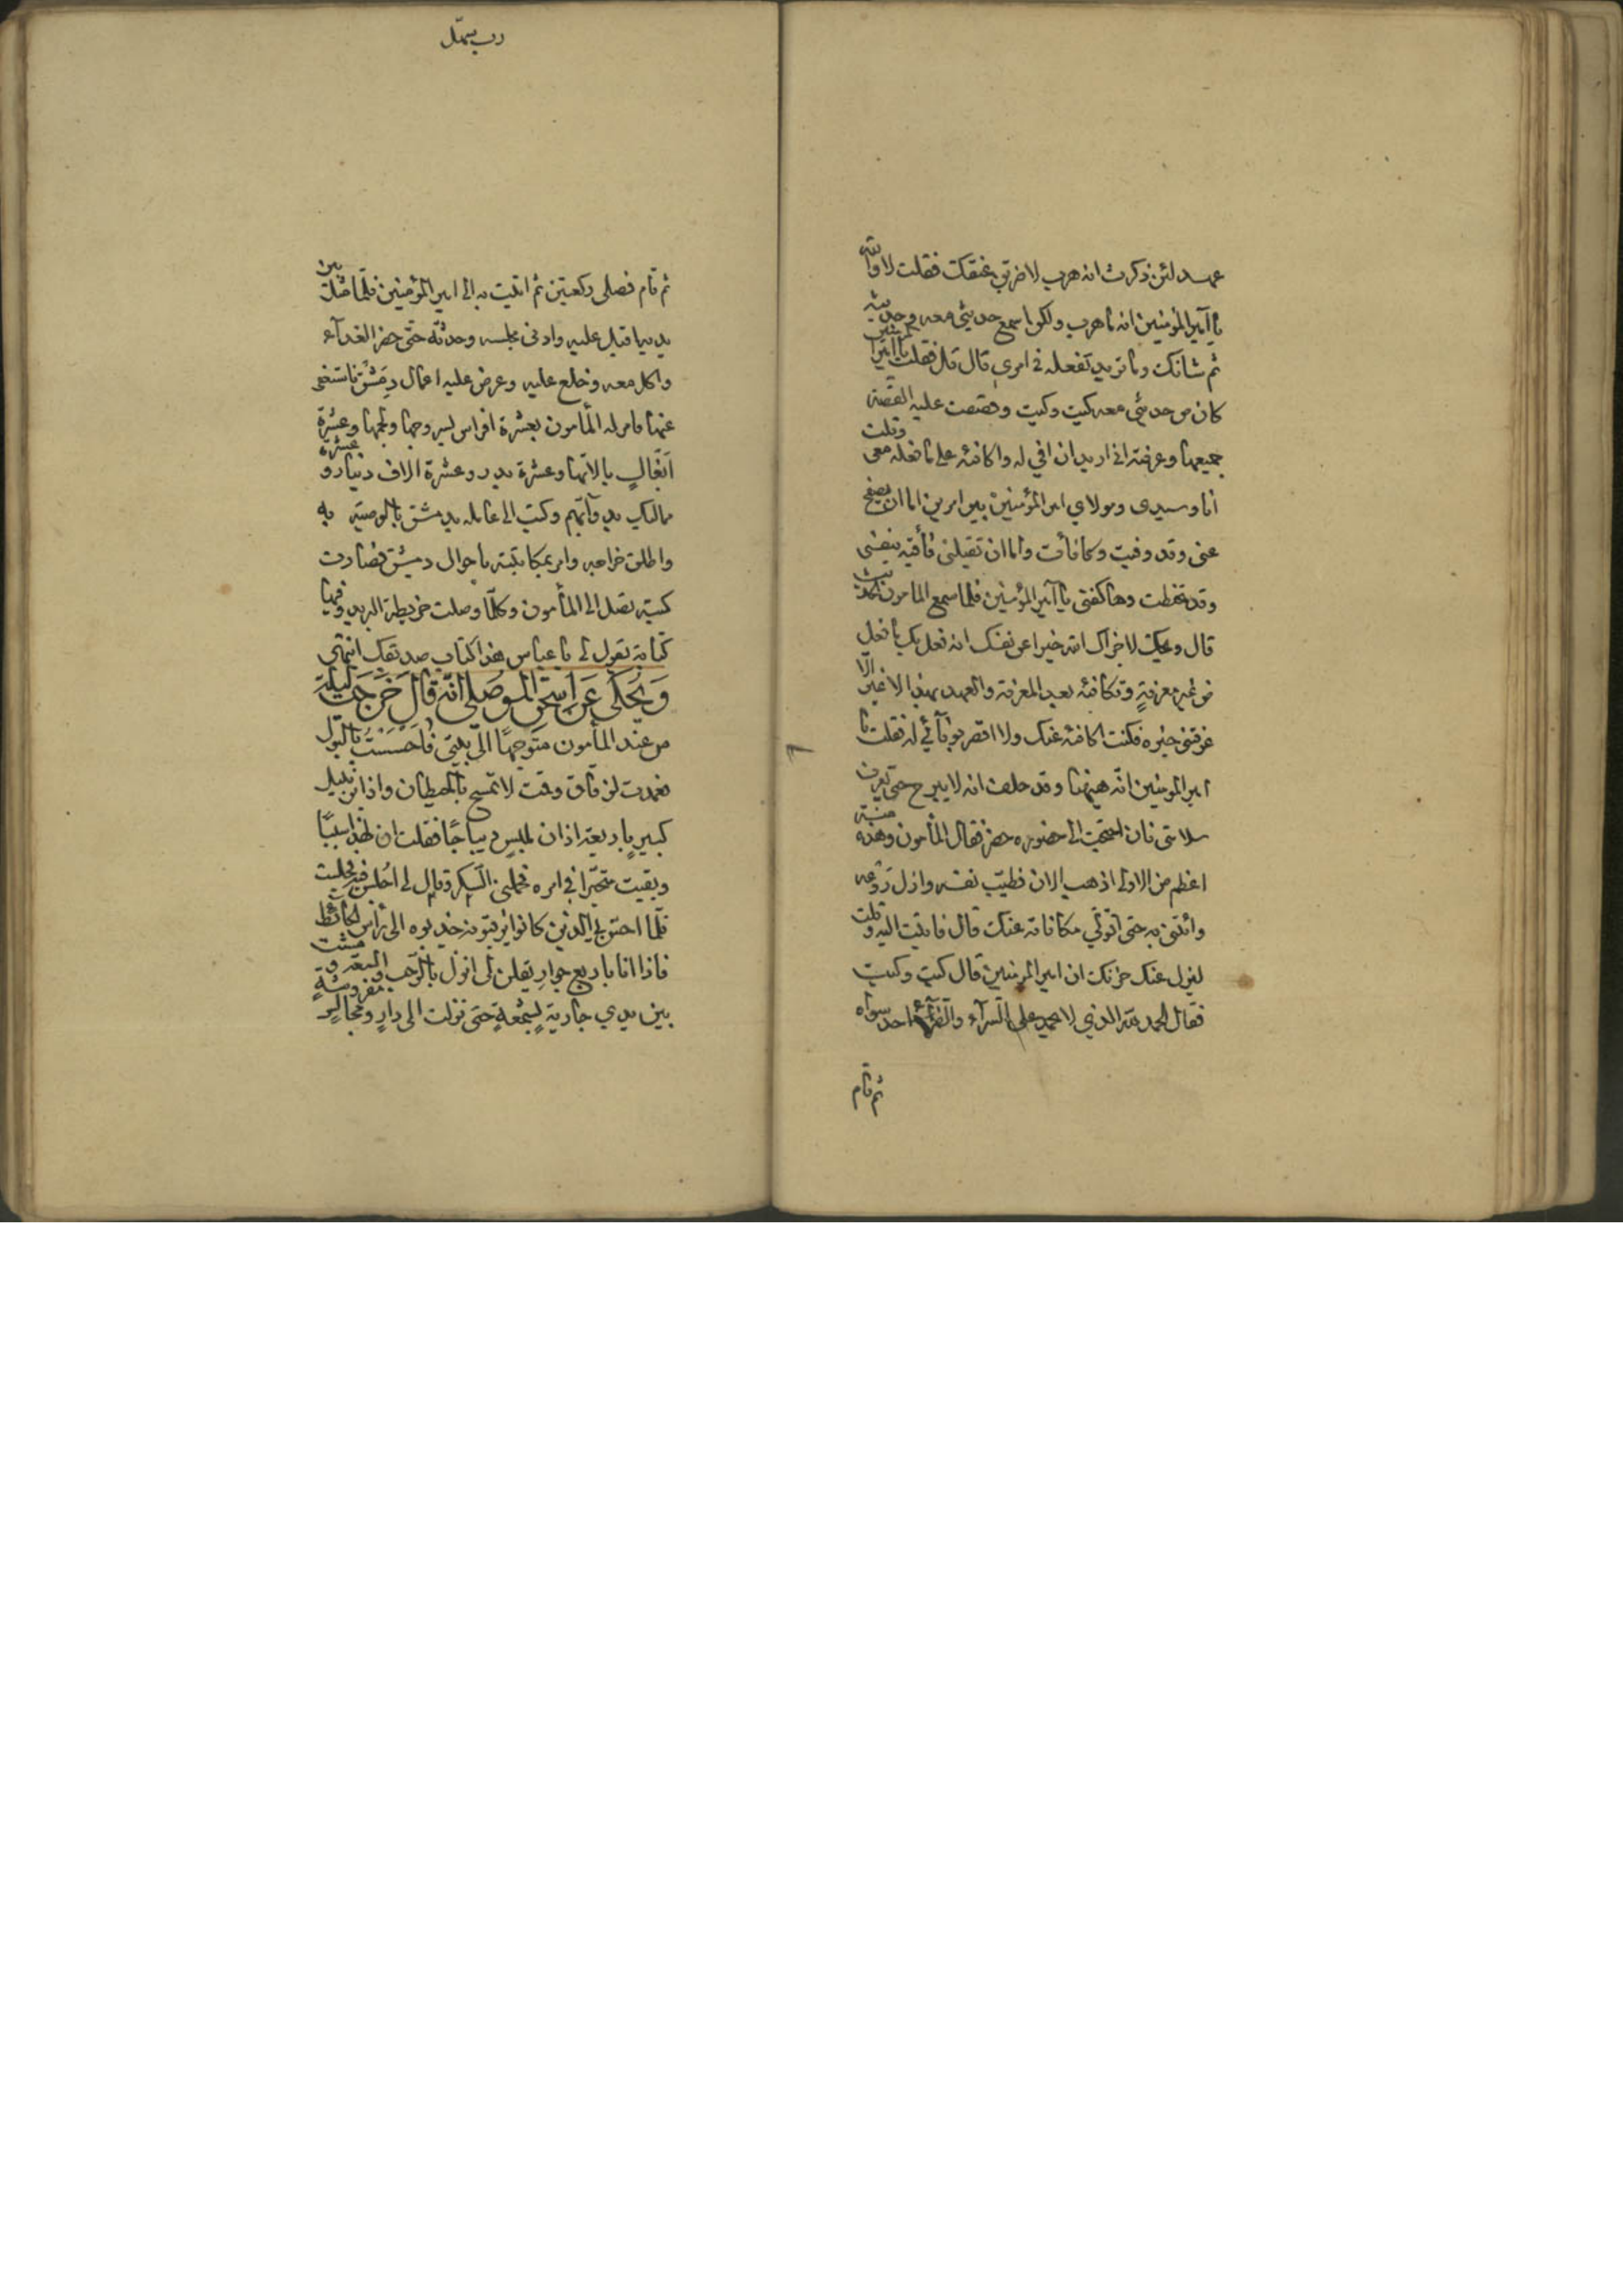 عهد لئن ذكرت انه هرب لاضربن عنقك فقلت لا والله
يا امير المؤمنين انه ما هرب ولكن اسمع حديثي معه وحديثه
ثم شانك وما تريد تفعله في امري قال قل فقلت يا امير المؤمنين
كان من حديثي معه كيت وكيت وقصصت عليه القصة
جميعها وعرفته اني اريد ان افي له واكافئه على ما فعله معي وقلت
انا وسيدي ومولاي امير المؤمنين بين امرين اما ان يصفح
عني وقد وفيت وكافأت واما ان تقتلني فأقيه بنفسي
وقد تحنطت وها كفني يا امير المؤمنين فلما سمع المامون الحديث
قال ويحك لا جزاك الله خيرا عن نفسك انه فعل بك ما فعل
من غير معرفة وتكافئه بعد المعرفة والعهد بهذا لا غير الا
عرفتني خبره فكنت اكافئه عنك ولا اقصر بوفائي له فقلت يا
امير المؤمنين انه ههنا وقد حلف انه لا يبرح حتى يعرف
سلامتي فان احتجت الى حضوره حضر فقال المأمون وهذه منة
اعظم من الاولى اذهب الان فطيب نفسه وازل روعه
وائتني به حتى اتولى مكافاته عنك قال فاتيت اليه وقلت
ليزل عنك حزنك ان امير المؤمنين قال كيت وكيت
فقال الحمد لله الذي لا يحمد على السرآء والضرآء احد سواه
ثم قام
رب سهل
ثم قام فصلى ركعتين ثم اتيت به الى امير المؤمنين فلما مثل بين
يديه اقبل عليه وادنى مجلسه وحدثه حتى حضر الغدآء
واكل معه وخلع عليه وعرض عليه اعمال دمشق فاستعفى
عنها فامر له المأمون بعشرة افراس بسروجها ولجمها وعشرة
ابغال بالاتها وعشرة بدر وعشرة الاف دينار وعشرة
مماليك بدوآبهم وكتب الى عامله بدمشق بالوصية به
واطلق خراجه وامر بمكاتبته باحوال دمشق فصارت
كتبه تصل الى المأمون وكلما وصلت خريطة البريد وفيها
كتابه يقول لي يا عباس هذا كتاب صديقك انتهى
ويحكى عن اسحق الموصلي انه قال خرجت ليلة
من عند المأمون متوجها الى بيتي فأحسست بالبول
فعمدت لزقاق وقمت لاتمسح بالحيطان واذا بزنبيل
كبير باربعة اذان ملبس ديباجا فقلت ان لهذا سببا
وبقيت متحيرا في امره فحملني السكر وقال لي اجلس فيه فجلست
فلما احس بي الذين كانوا يرقبونه جذبوه الى رأس الحائط
فاذا انا باربع جوار يقلن لي انزل بالرحب والسعة ومشت
بين يدي جارية بشمعة حتى نزلت الى دار ومجالس مفروشة